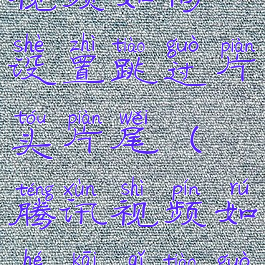 视频如何
shè zhì tiào guò piàn
设置跳过片
tóu piàn wěi
头片尾（
téng xùn shì pín rú
腾讯视频如
hé kāi qǐ tiào guò